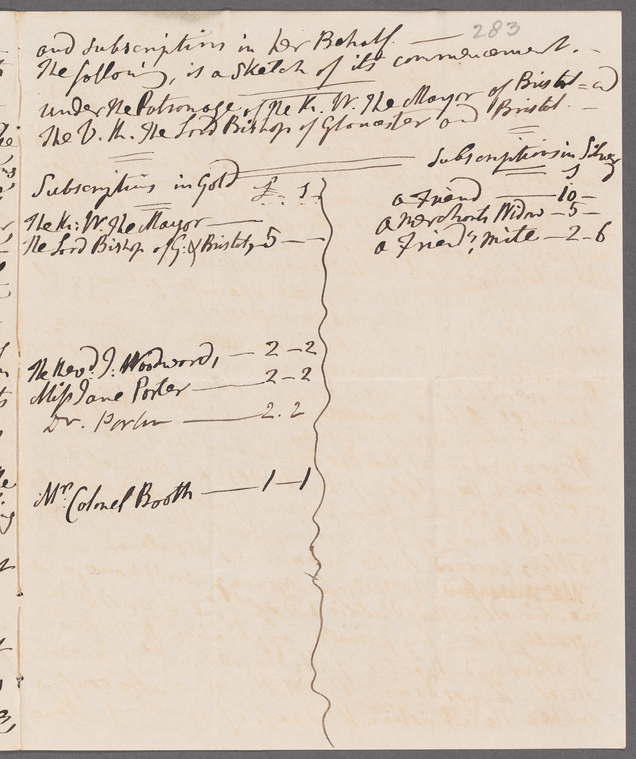 283
and subscriptions in her Behalf. —
The following, is a Sketch of its commencement. —
under the Patronage, of the Rt. W. The Mayor of Bristol = and
The V. Rt. The Lord Bishop of Gloucester and Bristol —
Subscriptions in Gold £. s.
The Rt: W. The Mayor ———
The Lord Bishop of G: & Bristol, 5 —
The Revd. J. Woodward, — 2 – 2
Miss Jane Porter ——— 2 – 2
Dr. Porter ——— 2. 2
Mrs. Colonel Booth ——— 1 – 1
Subscriptions in Silver
s
a Friend ——— 10 –
a Merchants Widow – 5 –
a Friend's, mite — 2 – 6